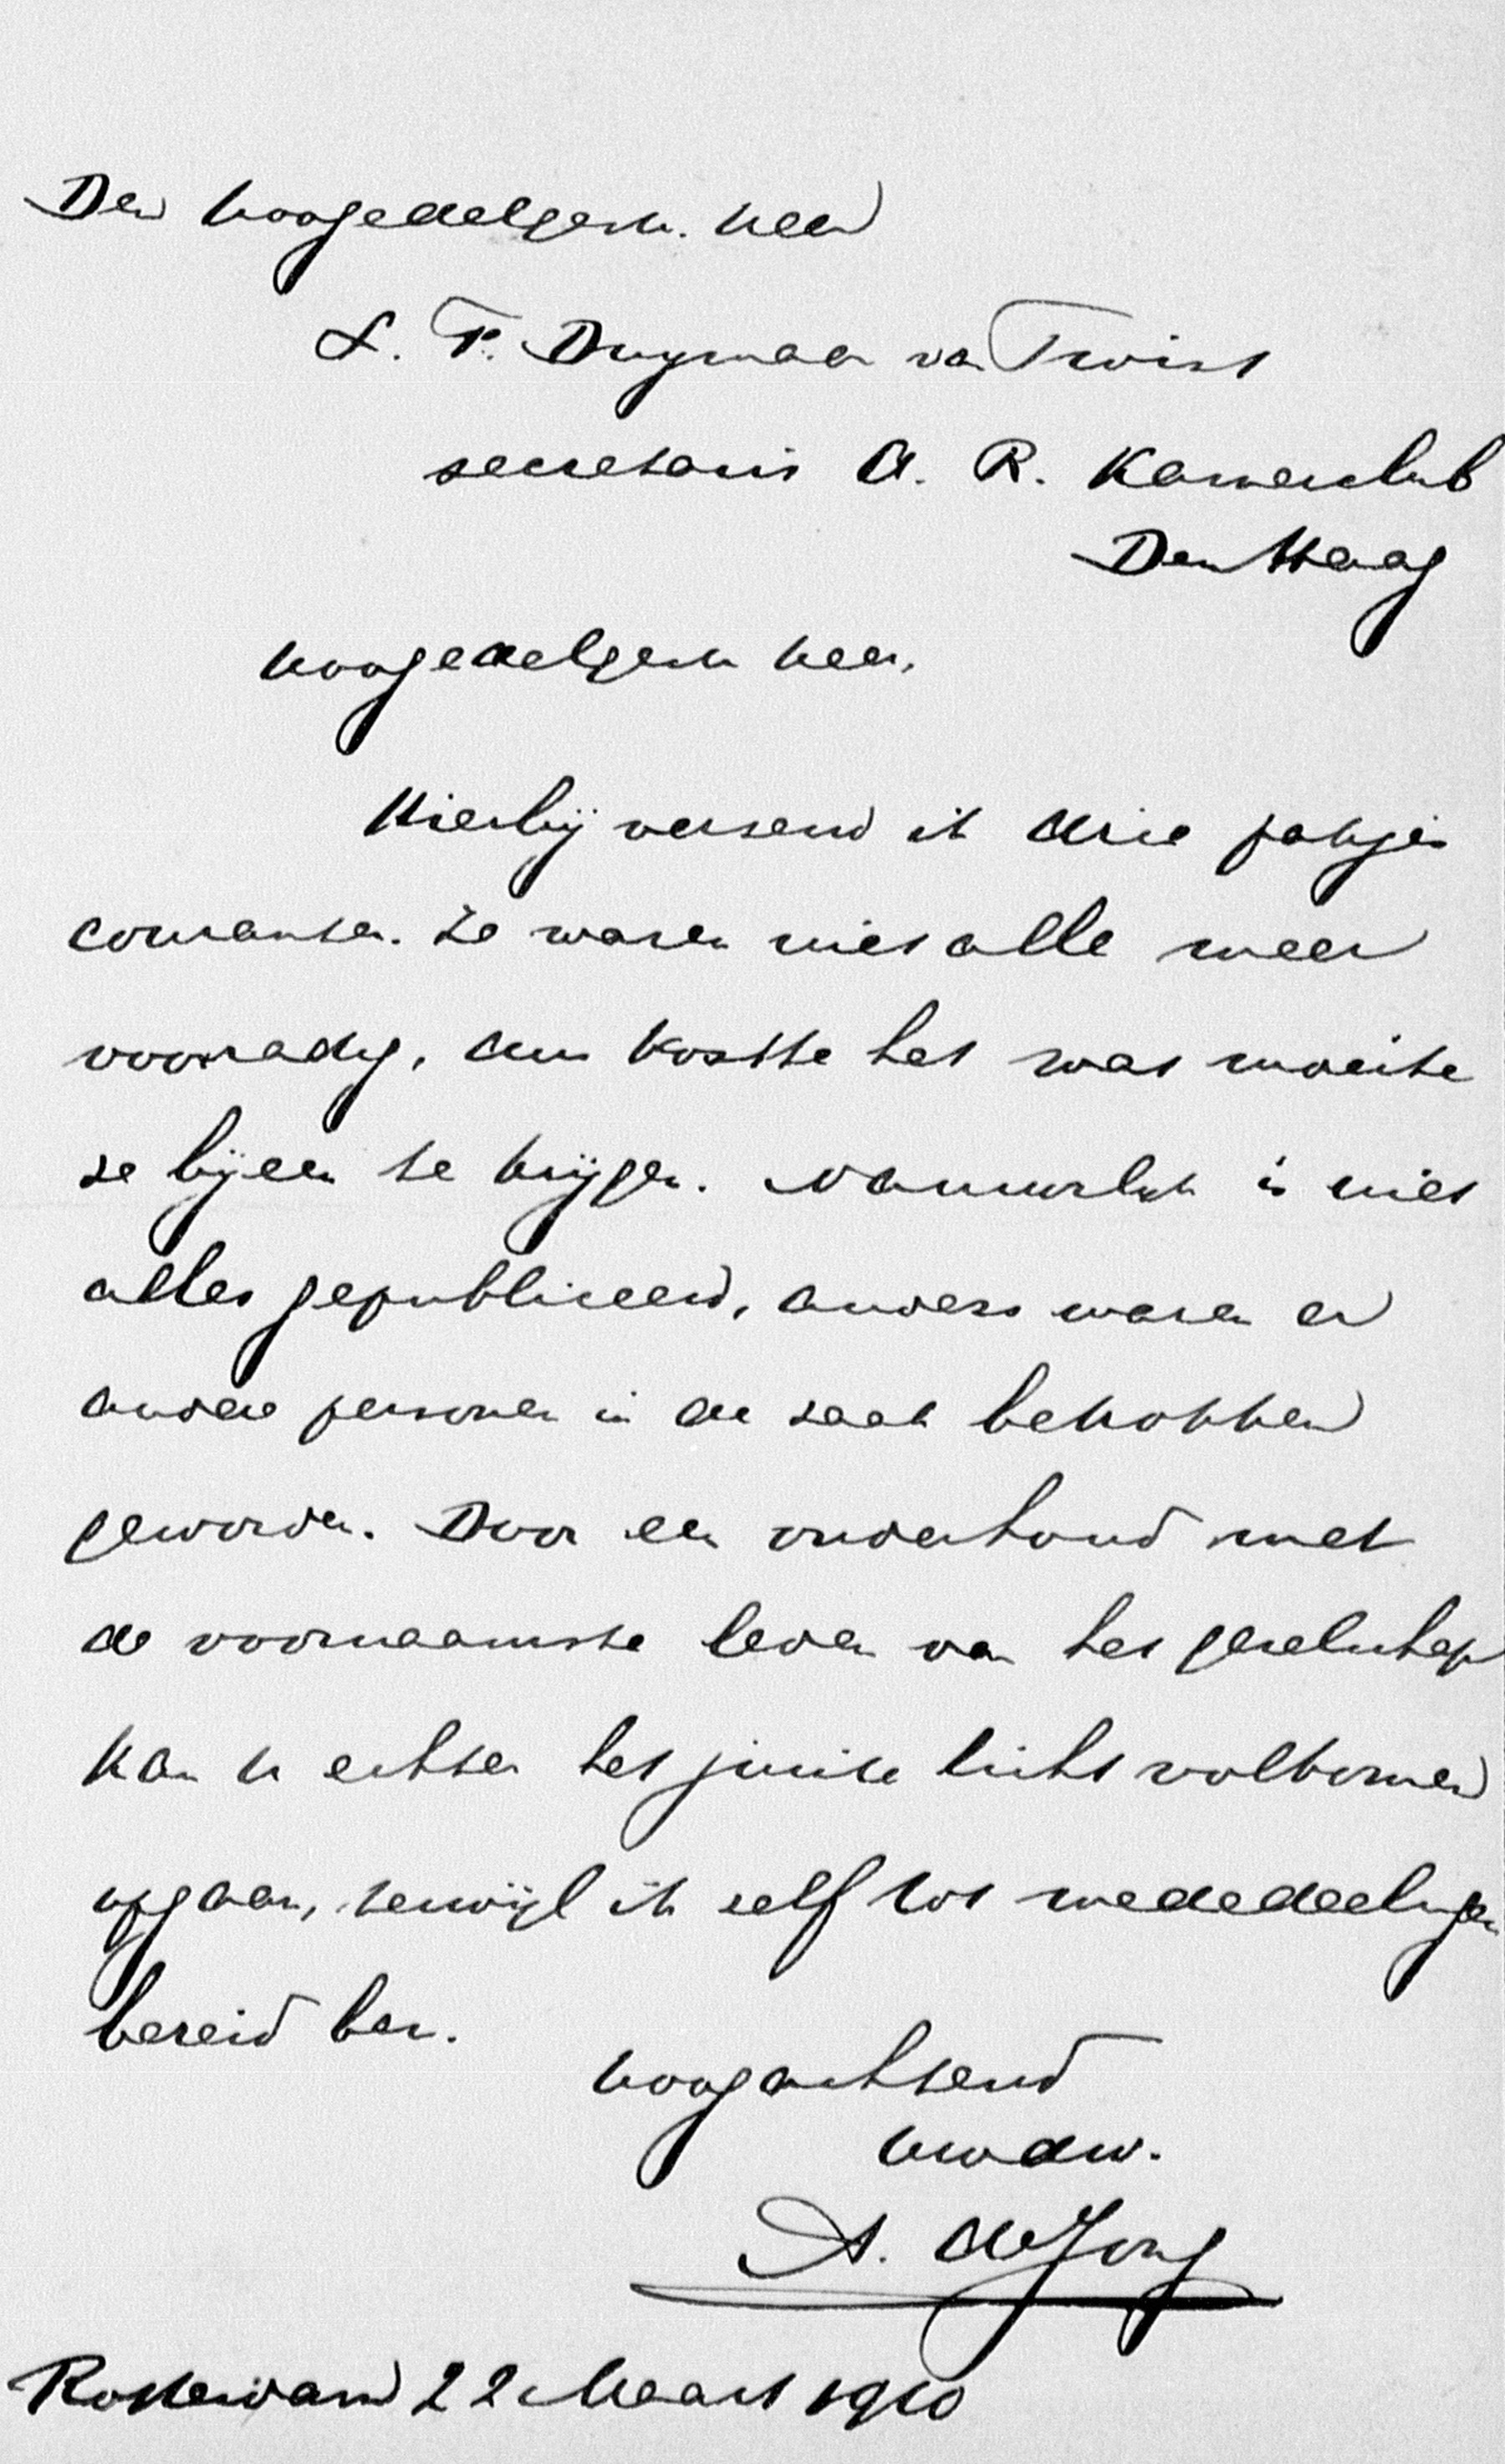 Den hoogedelgestr. heer
L. F. Duymaer van Twist
secretaris A. R. Kamerclub
Den Haag
hoogedelgestr heer,
Hierbij verzend ik drie pakjes
couranten. Ze waren niet alle meer
voorradig, dus kostte het wat moeite
ze bijeen te krijgen. Natuurlijk is niet
alles gepubliceerd, anders waren er
andere personen in de zaak betrokken
geworden. Door een onderhoud met
de voornaamste leden van het gezelschap
kan u echter het juiste licht volkomen
opgaan, terwijl ik zelf tot mededeelingen
bereid ben.
hoogachtend
uwdw.
A. de Jong
Rotterdam 22 Maart 1910